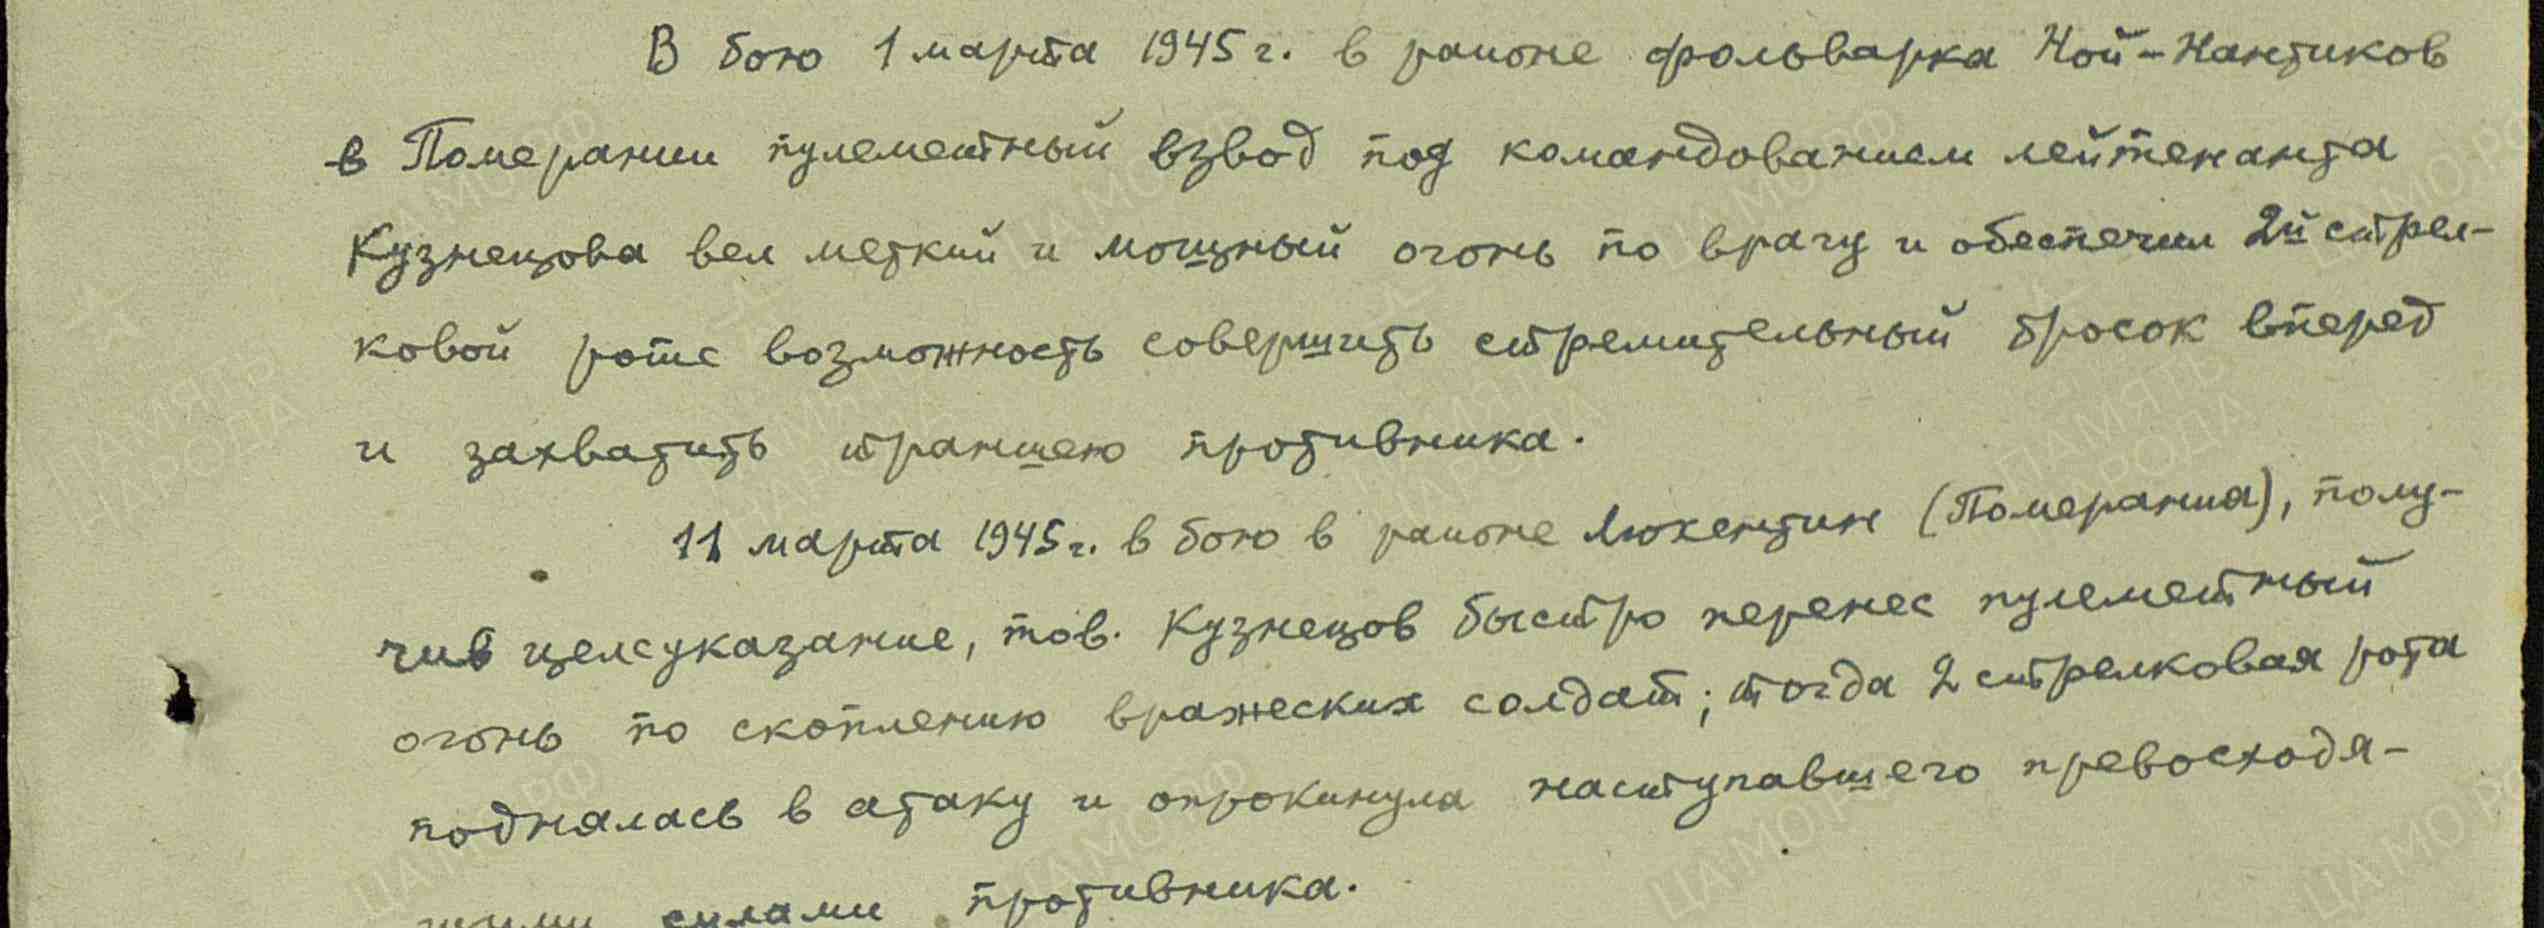 В бою 1 марта 1945 г. в районе фольварка Ной-Нантиков
в Померании пулеметный взвод под командованием лейтенанта
Кузнецова вел меткий и мощный огонь по врагу и обеспечил 2й стрел-
ковой роте возможность совершить стремительный бросок вперед
и захватить траншею противника.
11 марта 1945 г. в бою в районе Люкентин (Померания), полу-
чив целеуказание, тов. Кузнецов быстро перенес пулеметный
огонь по скоплению вражеских солдат; тогда 2 стрелковая рота
поднялась в атаку и опрокинула наступавшего превосходя-
щими силами противника.